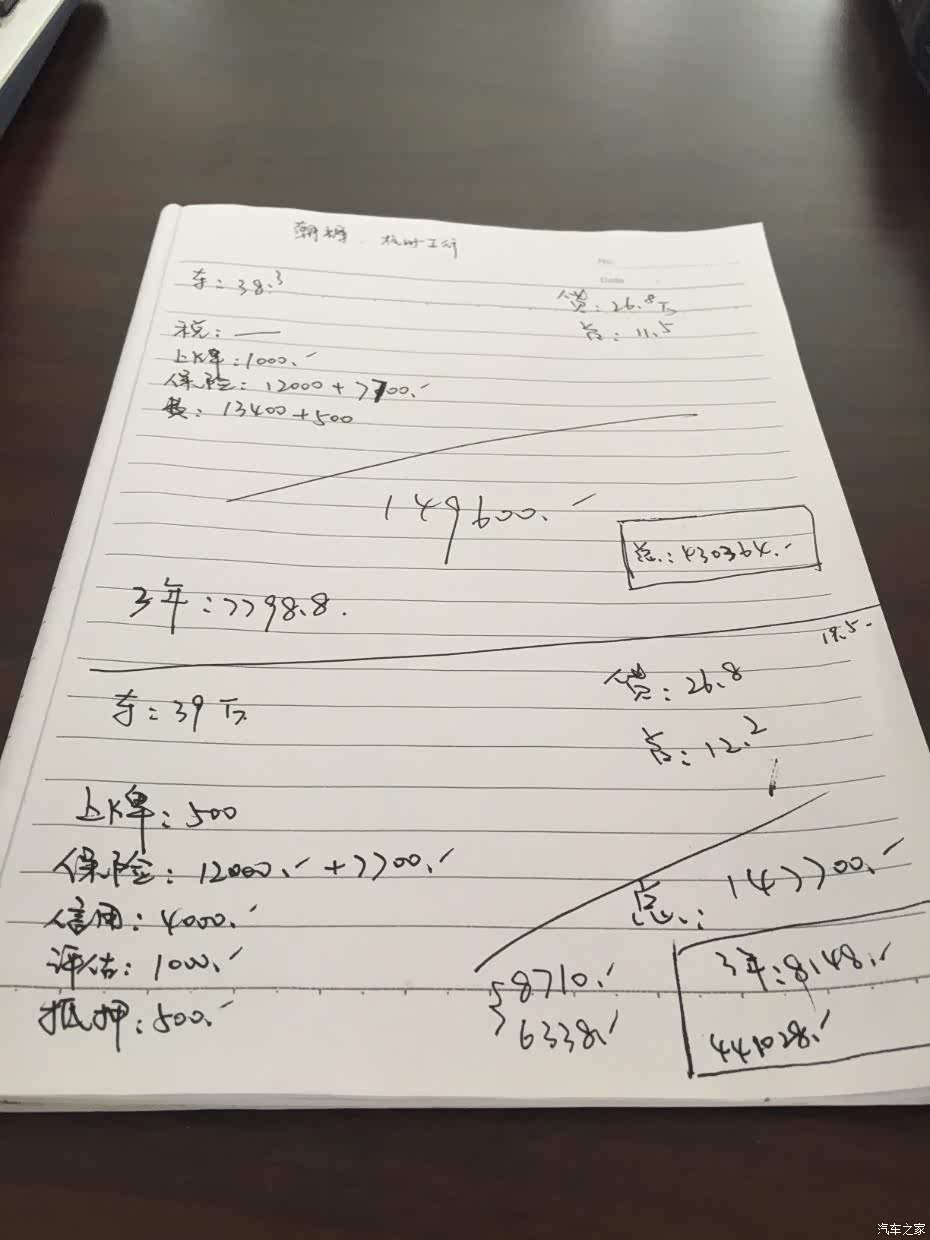 No.
Date
车：38.3
贷：26.8万
首：11.5
税：—
上K牌：1000.
保险：12000 + 7700.
费：13400+500
149600.
总：430364.
3年：7798.8.
19.5.
贷：26.8
车：39万
首：12.2
上K牌：500
保险：12000. + 7700.
总：147700.
信用：4000.
评估：1000.
3年：8148.
8710.
抵押：500.
6338.
441028.
汽车之家